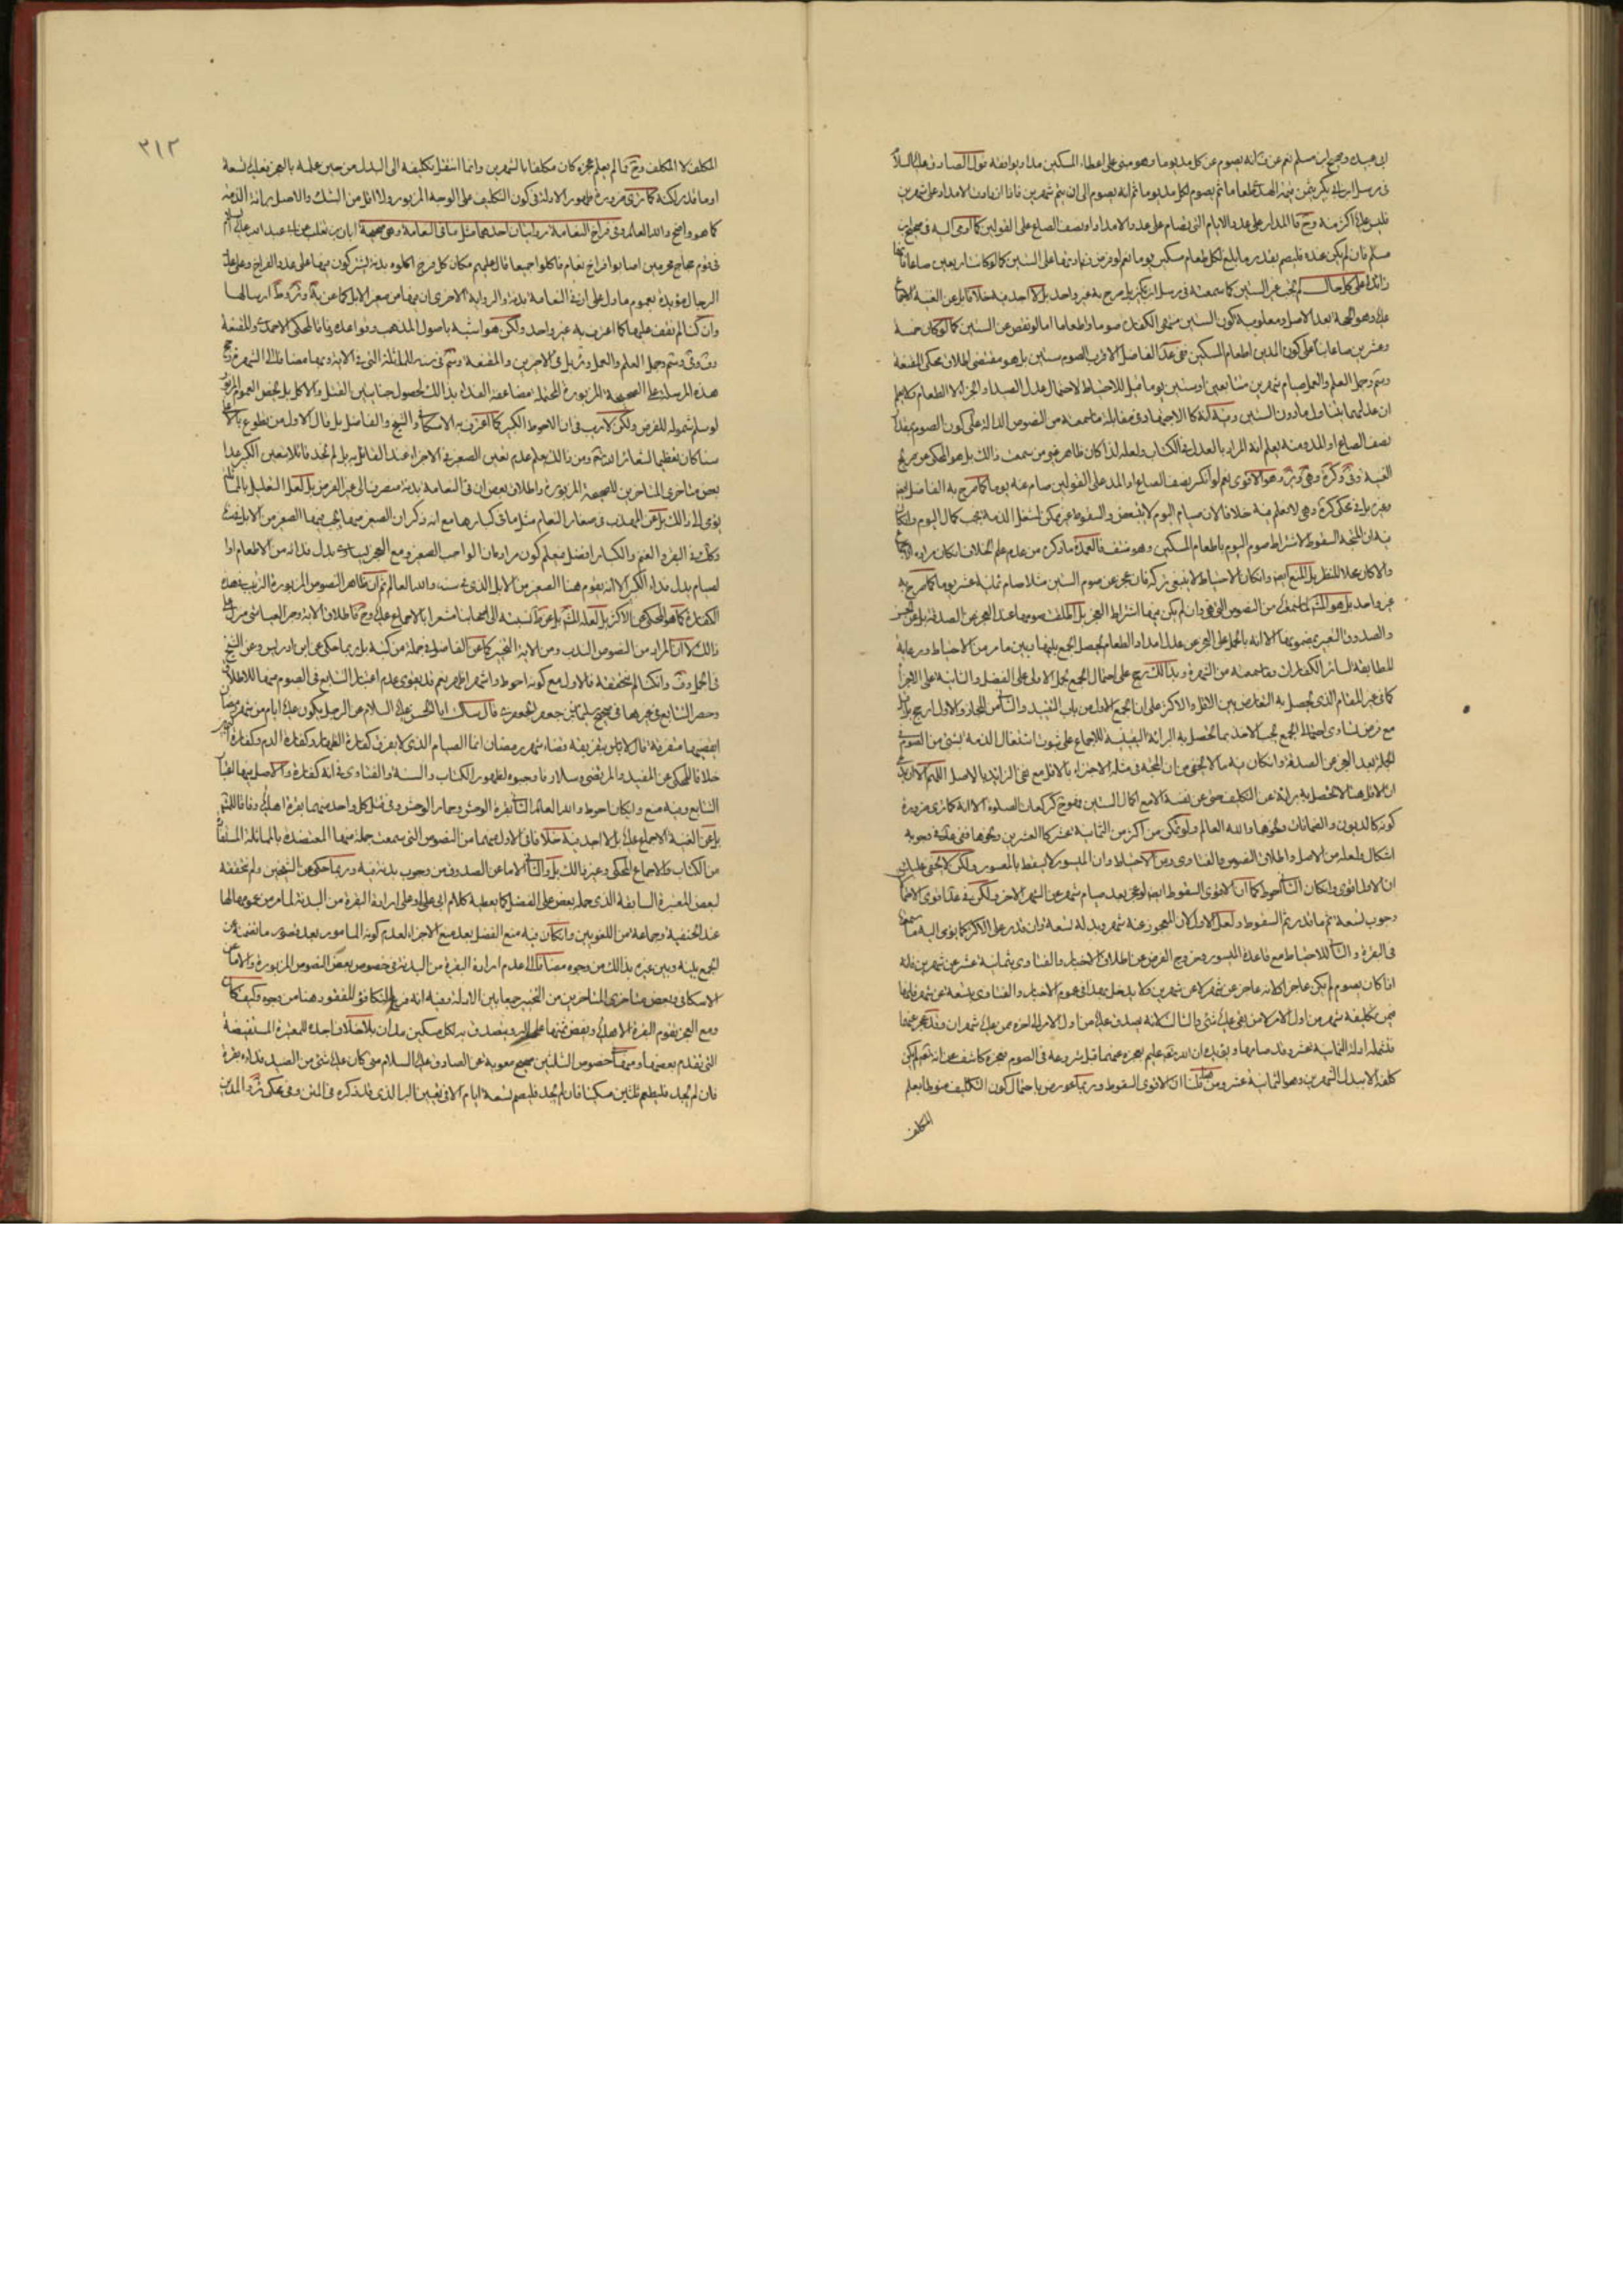 ابي عبيدة وصحيح ابن مسلم نعم عن انه يصوم عن كل مد يوما وهو مبنى على اعطاء المسكين مدا ويوافقه قول الصادق عليه السلام
فى مرسل ابن بكير يثمن قيمة الهدى طعاما ثم يصوم لكل مد يوما ثم انه يصوم الى ان يتم شهرين فاذا زادت الامداد على شهرين
فليس عليه اكثر منه وح فالمدار على عدد الايام التى يصام على عدد الامداد او نصف الصاع على القولين كما اومى اليه فى صحيح ابن
مسلم فان لم يكن عنده فليصم بقدر ما بلغ لكل طعام مسكين يوما نعم لو فرض زيادتها على الستين كما لو كانت اربعين صاعا
زائدا على كل حال لم تجب غير الستين كما سمعته فى مرسل ابن بكير بل صرح به غير واحد بل لا اجد فيه خلافا بل عن الغنية الاجماع
عليه وهو الحجة بعد الاصل ومعلومية كون الستين منتهى الكفارة صوما واطعاما اما لو نقص عن الستين كما لو كان خمسة
وعشرين صاعا بناء على كون المدين اطعام المسكين ففى عد الفاضل الاقرب الصوم ستين بل هو مقتضى اطلاق محكى المقنعة
وجمل العلم والعمل صيام شهرين متتابعين او ستين يوما قيل للاحتياط لاحتمال عدل الصيد او الجزاء لا الطعام
ان عدلهما يتناول ما دون الستين وفيه انه كالاجتهاد فى مقابلة ما سمعته من النصوص الدالة على كون الصوم بقدر
نصف الصاع او المد ومنه يعلم انه المراد بالعدل فى الكتاب ولعله لذا كان ظاهر غيره من سمعت ذلك بل هو المحكى عن صريح
الغنية وهو الاقوى نعم لو انكسر نصف الصاع او المد على القولين صام عنه يوما كما صرح به الفاضل ايضا
وغيره بل فى محكى كره وهى لا نعلم فيه خلافا لان صيام اليوم لا يتبعض والسقوط غير ممكن لشغل الذمة فيجب كمال اليوم وان كان
فيه ان المتجه السقوط لاشتراط صوم اليوم باطعام المسكين وهو منتف فالعمدة ما ذكره من عدم علم الخلاف ان كان مراده الاجماع
والا كان محلا للنظر بل المنع ايضا وان كان الاحتياط لا ينبغى تركه فان عجز عن صوم الستين مثلا صام ثمنية عشر يوما كما صرح به
غير واحد بل هو المشهور من النصوص التى وان لم يكن فيها اشتراط العجز بل اطلق صومها عند العجز عن الصدقة
والصدوق التعبير بمضمونها الا انه بالحمل على العجز عن عدل امداد الطعام يحصل الجمع بينها وبين ما مر من الاحتياط ورعاية
المطابقة لسائر الكفارات وما سمعته من الشهرة وبذلك رجح على احتمال الجمع بحمل الاولى على الفضل والثانية على الاجزاء
كما فى غير المقام الذى يحصل به التعارض بين الاقل والاكثر على ان الجمع الاول من باب التقييد والثانى من المجاز والاول ارجح بل
مع فرض تساوى احتمالى الجمع يجب الاخذ بما تحصل به البرائة اليقينية للاجماع على ثبوت اشتغال الذمة بشئ من الصوم فى
الجملة بعد العجز عن الصدقة وان كان فيه ما لا يخفى من ان المتجه فى مثله الاجتزاء بالاقل مع نفى الزايد بالاصل اللهم الا ان يدعى
ان الاقل هنا لا تحصل به براءة عن التكليف حتى عن نفسه الا مع اكمال الستين فهو ح كركعات الصلوة الا انه كما ترى ضرورة
كونه كالديون والضمانات ونحوها والله العالم ولو تمكن من اكثر من الثمانية عشر كالعشرين ونحوها ففى وجوبه
اشكال ولعله من الاصل واطلاق النصوص والفتاوى ومن الاحتياط وان الميسور لا يسقط بالمعسور ولكن لا يخفى عليك
ان الاول اقوى وان كان الثانى احوط كما ان الاقوى السقوط ايضا لو عجز بعد صيام شهر عن الشهر الاخر ولكن فى عد اقوى الاحتمالات
وجوب تسعة ثم ما قدر ثم السقوط ولعل الاول لان المعجوز عنه شهر وبدله تسعة وان قدر على الاكثر كما يومى اليه ما سمعته
فى البقرة والثانى للاحتياط مع قاعدة الميسور وخروج الفرض عن اطلاق الاخبار والفتاوى بثمانية عشر عن شهرين فانه
اذا كان يصوم لم يكن عاجزا لانه عاجز عن شهر لا عن شهرين ولا يدخل بهذا فى عموم الاخبار والفتاوى بتسعة عن شهر فانها
فيمن تكليفه شهر من اول الامر لا من بقى عليه شئ والثالث لانه يصدق عليه من اول الامر الى اخره ممن عليه شهران وقد عجز عنهما
فتشمله ادلة الثمانية عشر وقد صامها ويق بان الله تعالى عليم بعجزه عنهما قبل شروعه فى الصوم فعجزه كاشف عن انه تعالى لم يكن
كلفه الا ببدل الشهرين وهو الثمانية عشر ومن هنا قلنا ان الاقوى السقوط وربما عورض باحتمال كون التكليف منوطا بعلم
المكلف
٣١٣
المكلف لا المكلف وح فما لم يعلم عجزه كان مكلفا بالشهرين وانما انتقل تكليفه الى البدل من حين علمه بالعجز فعليه تسعة
او ما قدر لكنه كما ترى ضرورة ظهور الادلة فى كون التكليف على الوجه المزبور ولا اقل من الشك والاصل براءة الذمة
كما هو واضح والله العالم وفى فراخ النعامة روايتان احديهما مثل ما فى النعامة وهى صحيحة ابان بن تغلب عن ابى عبد الله عليه السلام
فى قوم حجاج محرمين اصابوا افراخ نعام فاكلوا جميعا قال عليهم مكان كل فرخ اكلوه بدنة يشتركون فيها على عدد الفراخ وعلى عدد
الرجال مؤيدة بعموم ما دل على ان فى النعامة بدنة والرواية الاخرى ان فيها من صغير الابل كما عن ارسالها
وان كنا لم نقف عليها كما اعترف به غير واحد ولكن هو اشبه باصول المذهب وقواعده وفاقا لمحكى الاحمدى والمقنعة
وجمل العلم والعمل بل فى الاخرين والمقنعة فى سنه للمماثلة التى فى الاية وغيرها مضافا الى الشهرة
هذه المرسلة على الصحيحة المزبورة المحتملة مضاعفة الفداء بذلك لحصول جنايتين القتل والاكل بل يخص العموم المزبور
لو سلم شموله للفرض ولكن لا ريب فى ان الاحوط الكبير كما اعترف به الاسكافى والشيخ والفاضل بل قال الاول من تطوع بالاعلى
سنا كان تعظيما لشعائر الله تعالى ومن ذلك يعلم عدم تعين الصغير فى الاجزاء عند القائل به بل لم نجد قائلا بتعين الكبير عدا
بعض متاخرى المتاخرين للصحيحة المزبورة واطلاق بعض ان فى النعامة بدنة منصرف الى غير الفرض بل لعل التعليل بالمماثلة
يؤمى الى ذلك بل عن المهذب فى صغار النعام مثل ما فى كبارها مع انه ذكر ان الصغير فيها يجب فيها الصغير من الابل
وكذلك فى البقر والغنم والكبار افضل فيعلم كون مراده ان الواجب الصغير ومع العجز يساوى بدل فدائه من الاطعام او
الصيام بدل فداء الكبير الا انه يقوم هنا الصغير من الابل الذى فى سنه والله العالم ثم ان ظاهر النصوص المزبورة الترتيب هذه
الكفارة كما هو المحكى عن الاكثر بل لعله المشهور نسبته الى اصحابنا مشعرا بالاجماع عليه وح فاطلاق الاية وخبر العياشى منزل على
ذلك لا ان المراد من النصوص الندب ومن الاية التخيير كما عن الفاضل فى جملة من كتبه بل ربما حكى عن ابن ادريس وعن الشيخ
فى الجمل وان كنا لم نتحققه فالاول مع كونه احوط واشهر اظهر نعم قد يقوى عدم اعتبار التتابع فى الصوم فيها للاطلاق
وحصر التتابع فى غيرها فى صحيح سليمان بن جعفر الجعفرى قال سئلت ابا الحسن عليه السلام عن الرجل يكون عليه ايام من شهر رمضان
ايقضيها متفرقة قال لا بأس بتفرقة قضاء شهر رمضان انما الصيام الذى لا يفرق كفارة الظهار وكفارة الدم وكفارة اليمين
خلافا للمحكى عن المفيد والمرتضى وسلار فاوجبوه لظهور الكتاب والسنة والفتاوى فى انه كفارة والاصل فيها
التتابع وفيه منع وان كان احوط والله العالم الثانى بقرة الوحش وحمار الوحش وفى قتل كل واحد منهما بقرة اهلية وفاقا للمشهور
بل عن الغنية الاجماع عليه بل لا اجد فيه خلافا فى الاول منهما من النصوص التى سمعت جملة منها المعتضدة بالمماثلة المستفادة
من الكتاب والاجماع المحكى وغير ذلك بل والثانى الا ما عن الصدوق من وجوب بدنة فيه وربما حكى عن الشيخين ولم نتحققه
لبعض المعتبرة السابقة الذى حمله بعض على الفضل كما يعطيه كلام ابى على او على ارادة البقرة من البدنة لما مر من عمومها لها
عند الحنفية وجماعة من اللغويين وان كان فيه منع الفضل بعد منع الاجزاء لعدم كونه المامور به بعد قصور ما تضمنه عن
الجمع بينه وبين غيره بذلك من وجوه مضافا الى عدم ارادة البقرة من البدنة فى خصوص بعض النصوص المزبورة والا ما عن
الاسكافى وبعض متاخرى المتاخرين من التخيير جمعا بين الادلة وفيه انه فرع التكافؤ المفقود هنا من وجوه وكيف كان
ومع العجز يقوم البقرة الاهلية ويفض ثمنها على البر ويتصدق به لكل مسكين مدان بلا خلاف اجده للمعتبرة المستفيضة
التى تقدم بعضها ومنها خصوص الثلثين صحيح معوية عن الصادق عليه السلام من كان عليه شئ من الصيد فداه بقرة
فان لم يجد فليطعم ثلثين مسكينا فان لم يجد فليصم تسعة ايام الا فى تعيين البر الذى قد ذكره فى المتن وفى محكى والمدين